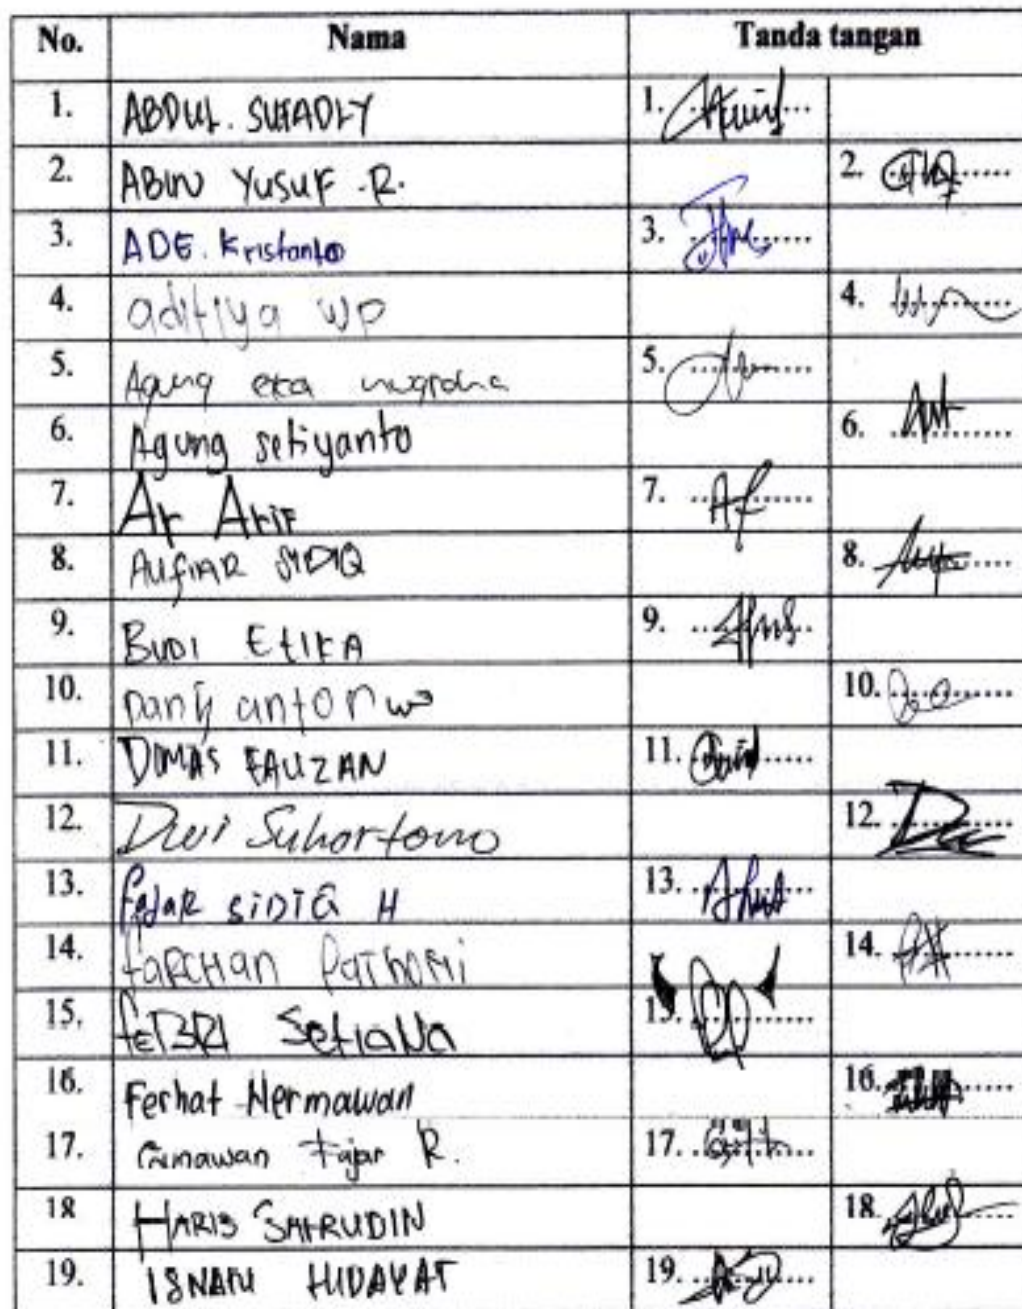 No. Nama Tanda tangan
1. ABDUL. SUHADLY 1.
2. ABIN YUSUF .R. 2.
3. ADE. Kristanto 3.
4. aditiya WP 4.
5. Agung eka nugroho 5.
6. Agung setiyanto 6.
7. Ar Arif 7.
8. AUFIAR SIDIQ 8.
9. BUDI EtIKA 9.
10. Dany antoni 10.
11. DIMAS FAUZAN 11.
12. Dwi Suhartono 12.
13. FaJAR SiDiQ H 13.
14. FARCHAN 14.
15. FeBRI SetiaNa 15.
16. Ferhat Hermawan 16.
17. Gunawan Fajar R. 17.
18 HARIS SAFRUDIN 18.
19. ISNANI HIDAYAT 19.